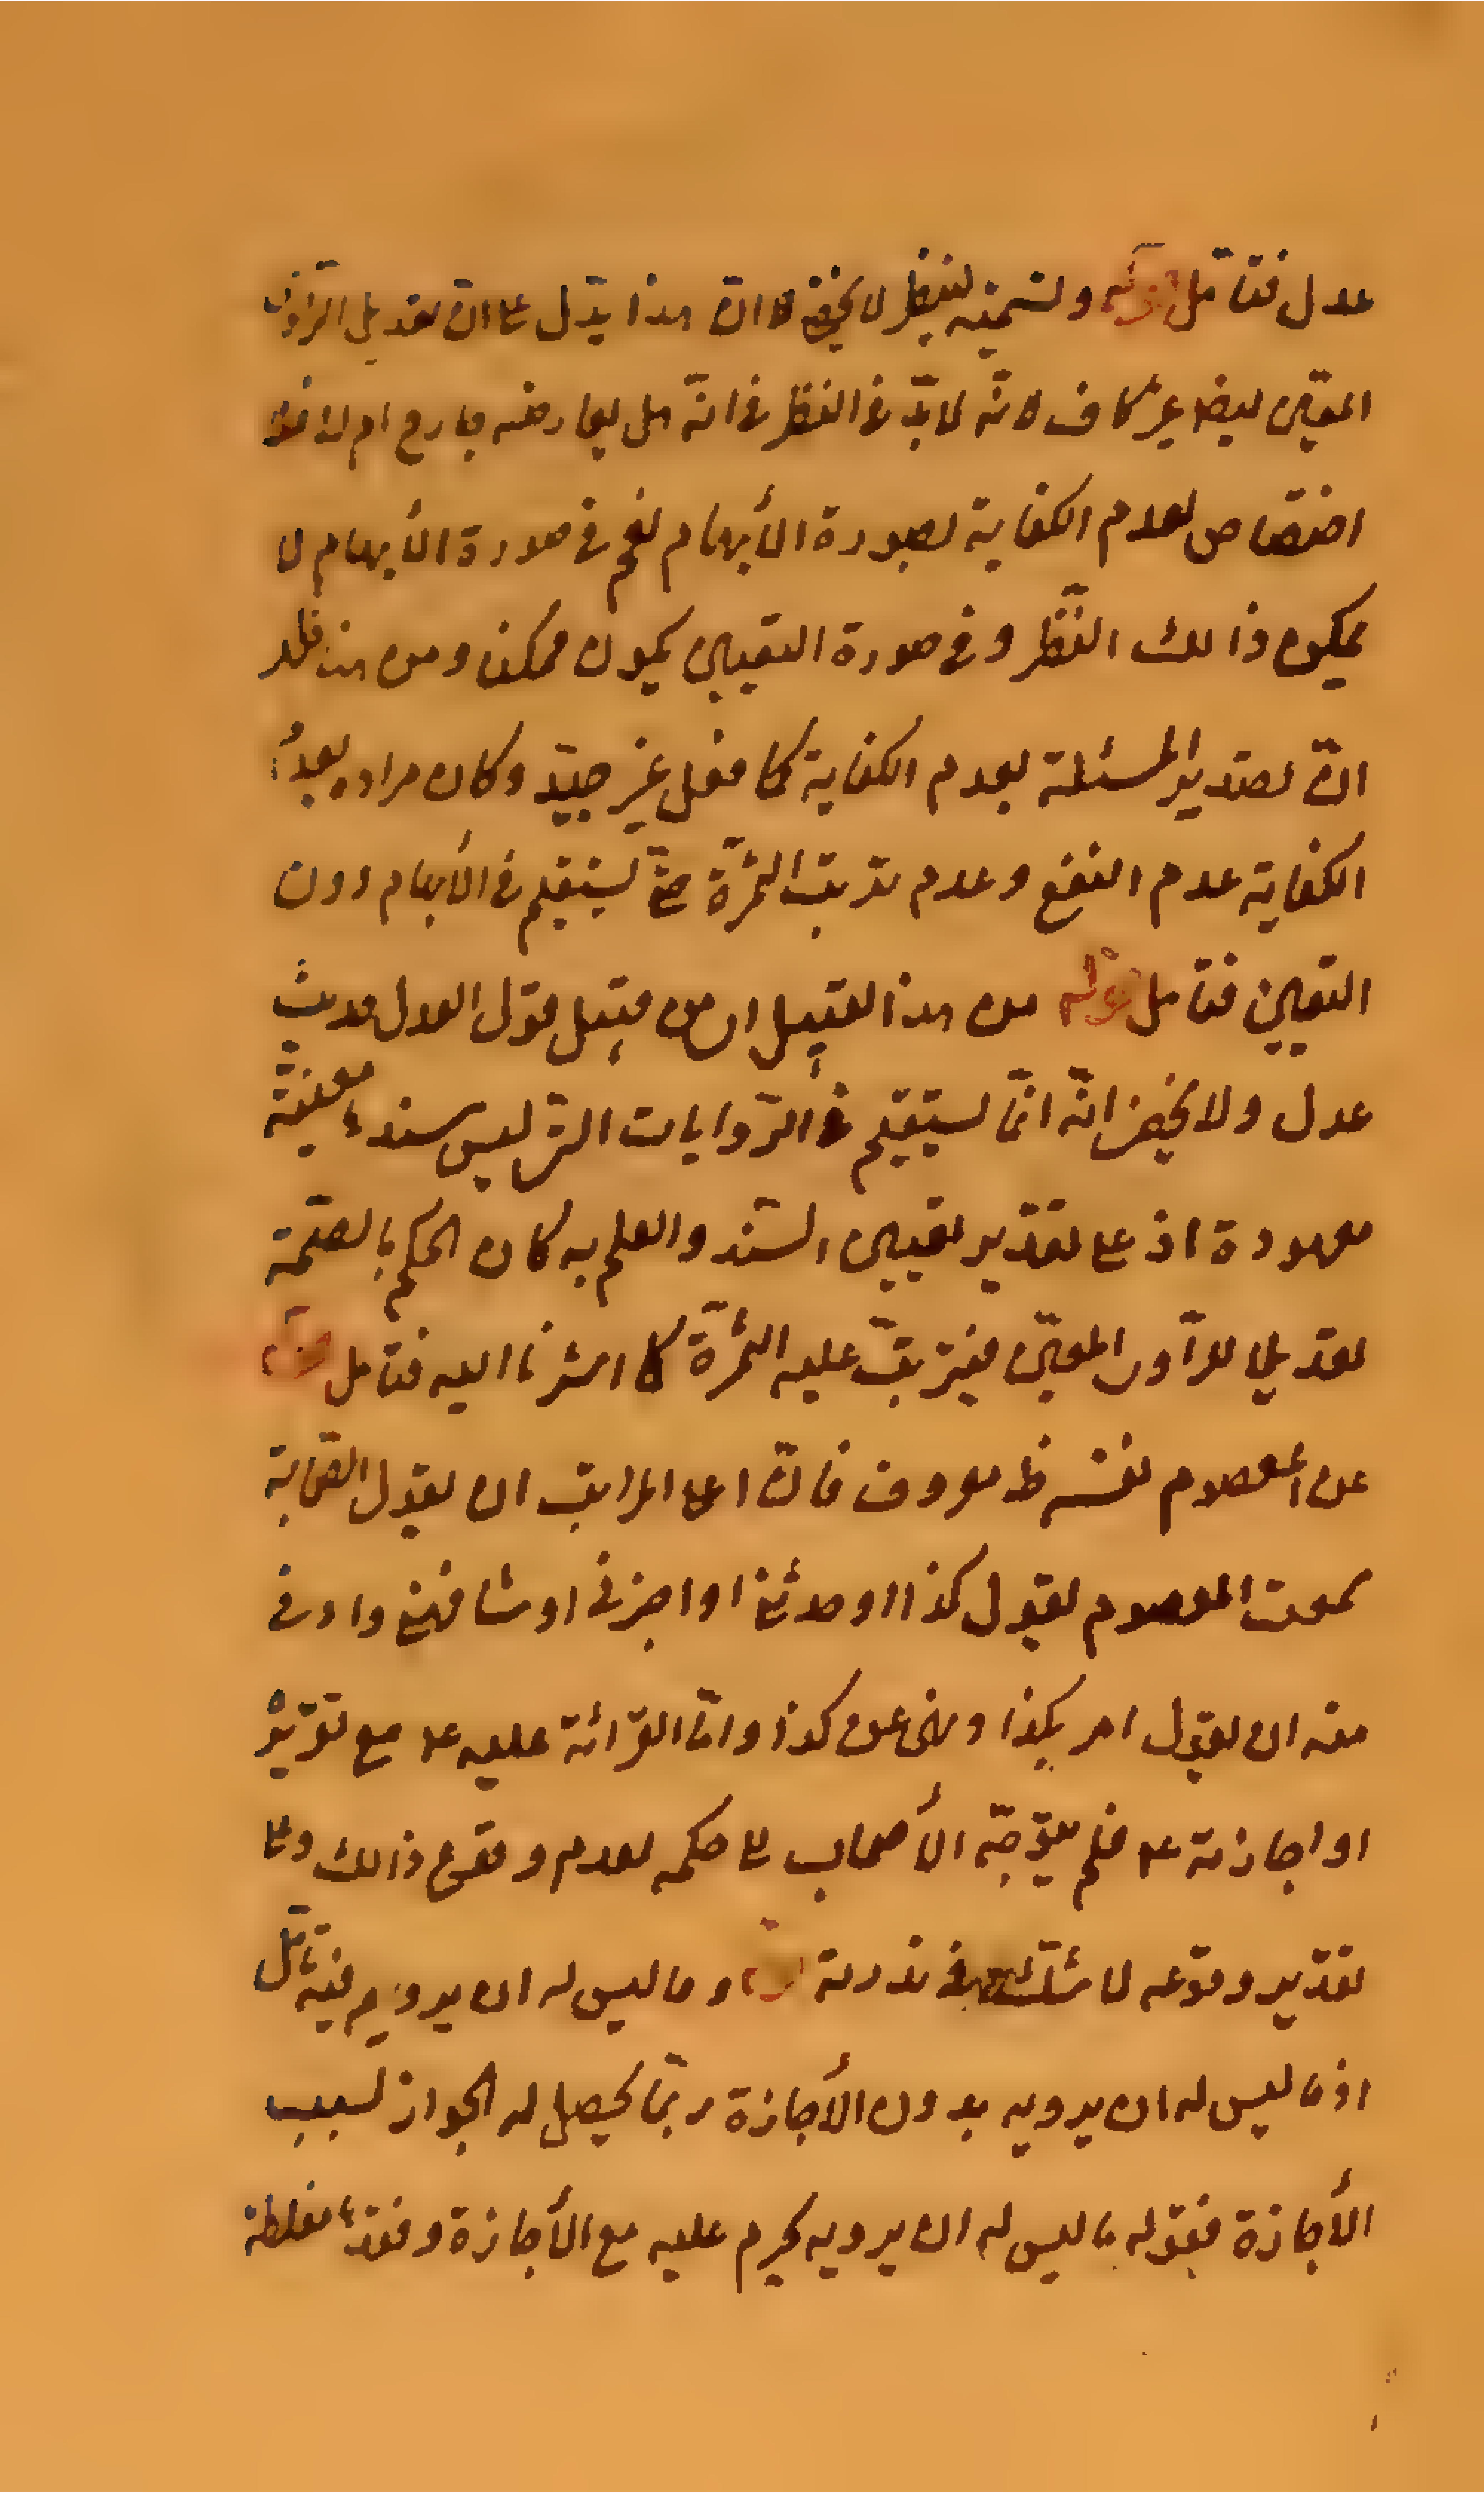 عدل فتأمّل قوله ولتسميته لينظر لا يخفى انّ هذا يدّل على انّ تعديل الرّاوى
المعيّن ايضا غير كاف لانّه لا بدّ فى النظر فى انّه هل يعارضه جارح ام لا فلا
اختصاص لعدم الكفاية بصورة الأبهام نعم فى صورة الأبهام لا
يمكن ذالك النّظر وفى صورة التعيين يكون ممكنا ومن هنا ظهر
انّ تصدير المسئلة بعدم الكفاية كما فعل غير جيّد وكان مراده بعدم
الكفاية عدم النفع وعدم ترتب الثمرّة حتّى يستقيم فى الأبهام دون
التعيين فتأمل قوله من هذا القبيل اى من قبيل قول العدل حدثنى
عدل ولا يخفى انّه انّما يستقيم فى الرّوايات التى ليس سندها معيّنة
معهودة اذ على تقدير تعيين السّند والعلم به كان الحكم بالصّحة
تعديلا للرّاوى المعيّن فيترتّب عليه الثمرّة كما اشرنا اليه فتأمل قوله
عن المعصوم نفسه ظ معروف فانّ اعلى المراتب ان يقول الصّحابة
سمعت المعصوم يقول كذا او حدثنى او اخبرنى او شافهنى وادنى
منه ان يقول امر بكذا ونهى عن كذا وامّا القرائة عليه ع مع تقريره
او اجازته ع فلم يتوجّه الأصحاب الى حكمه لعدم وقوع ذالك وعلى
تقدير وقوعه لا شكّ فى ندرته قوله وما ليس له ان يرويه فيه تأمّل
اذ ما ليس له ان يرويه بدون الأجازة ربّما يحصل له الجواز بسبب
الأجازة فقوله ما ليس له ان يرويه يحرم عليه مع الأجازة وفقدها مغلطة